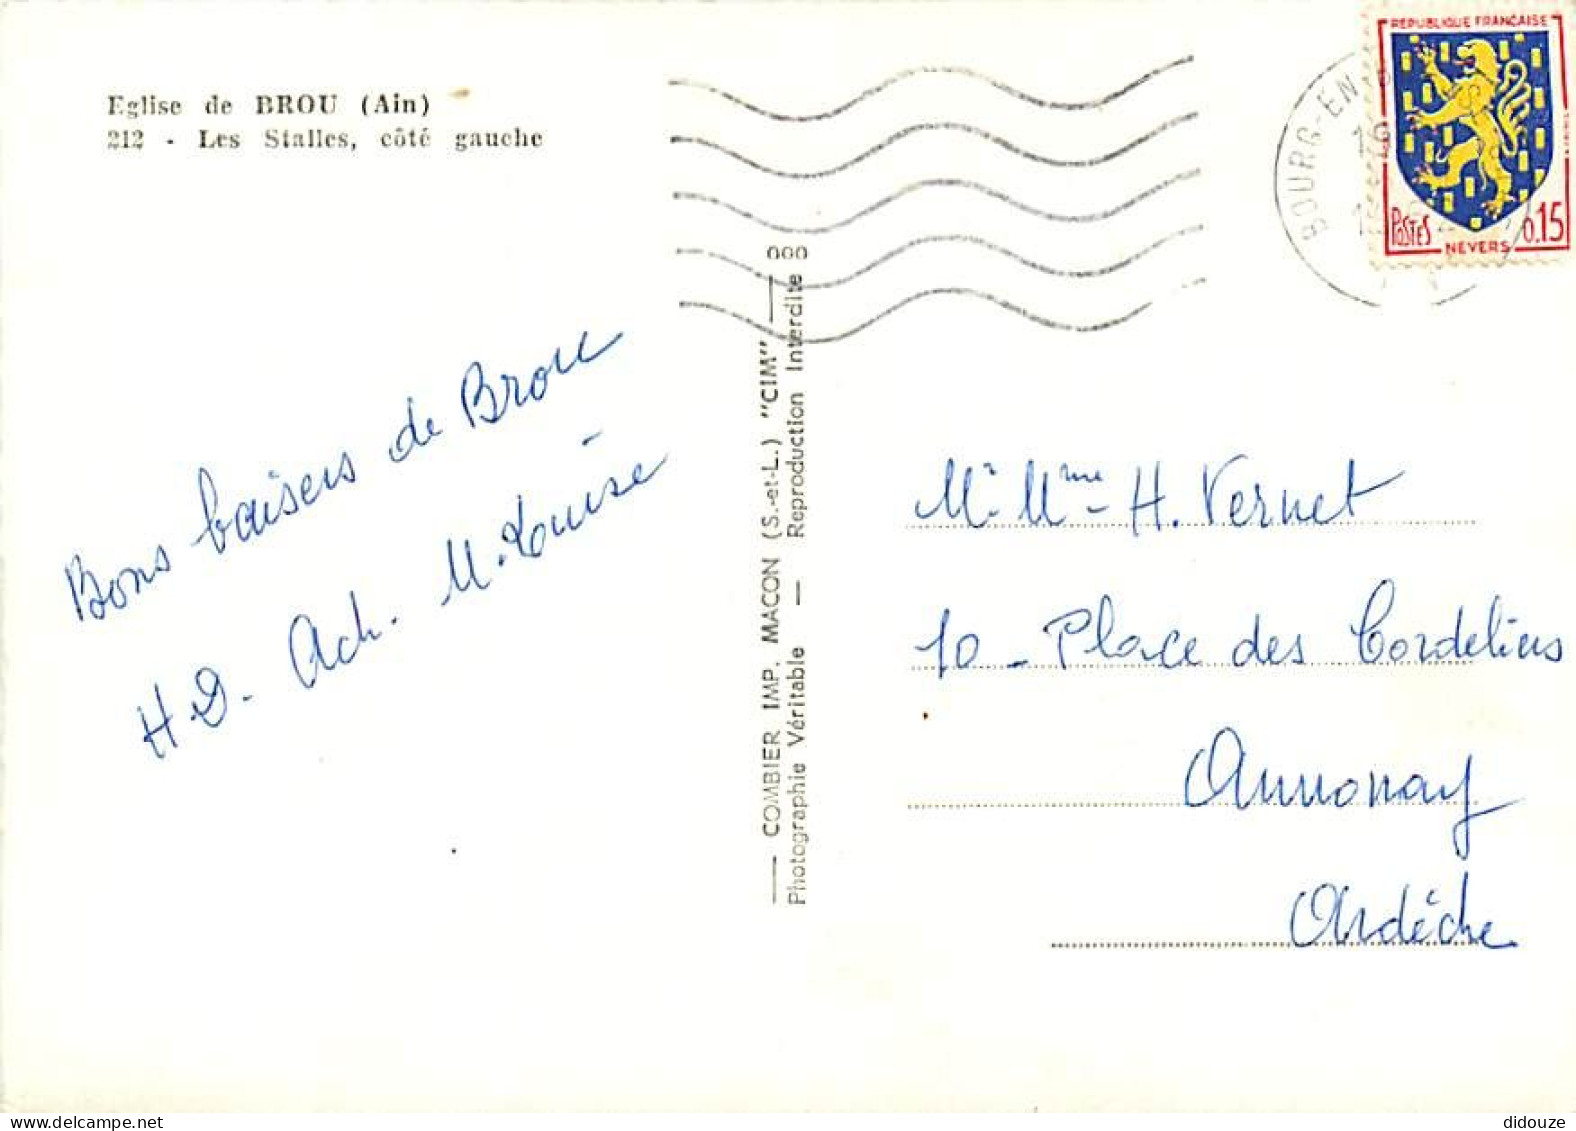 Eglise de BROU (Ain)
212 - Les Stalles, côté gauche
Bons baisers de Brou
H.D. Ach. M. Louise
COMBIER IMP. MACON (S.-et-L.) "CIM"
Photographie Véritable — Reproduction Interdite
BOURG-EN
REPUBLIQUE FRANÇAISE
POSTES
NEVERS
0.15
Mr Mme H. Vernet
10 - Place des Cordeliers
Annonay
Ardèche
didouze